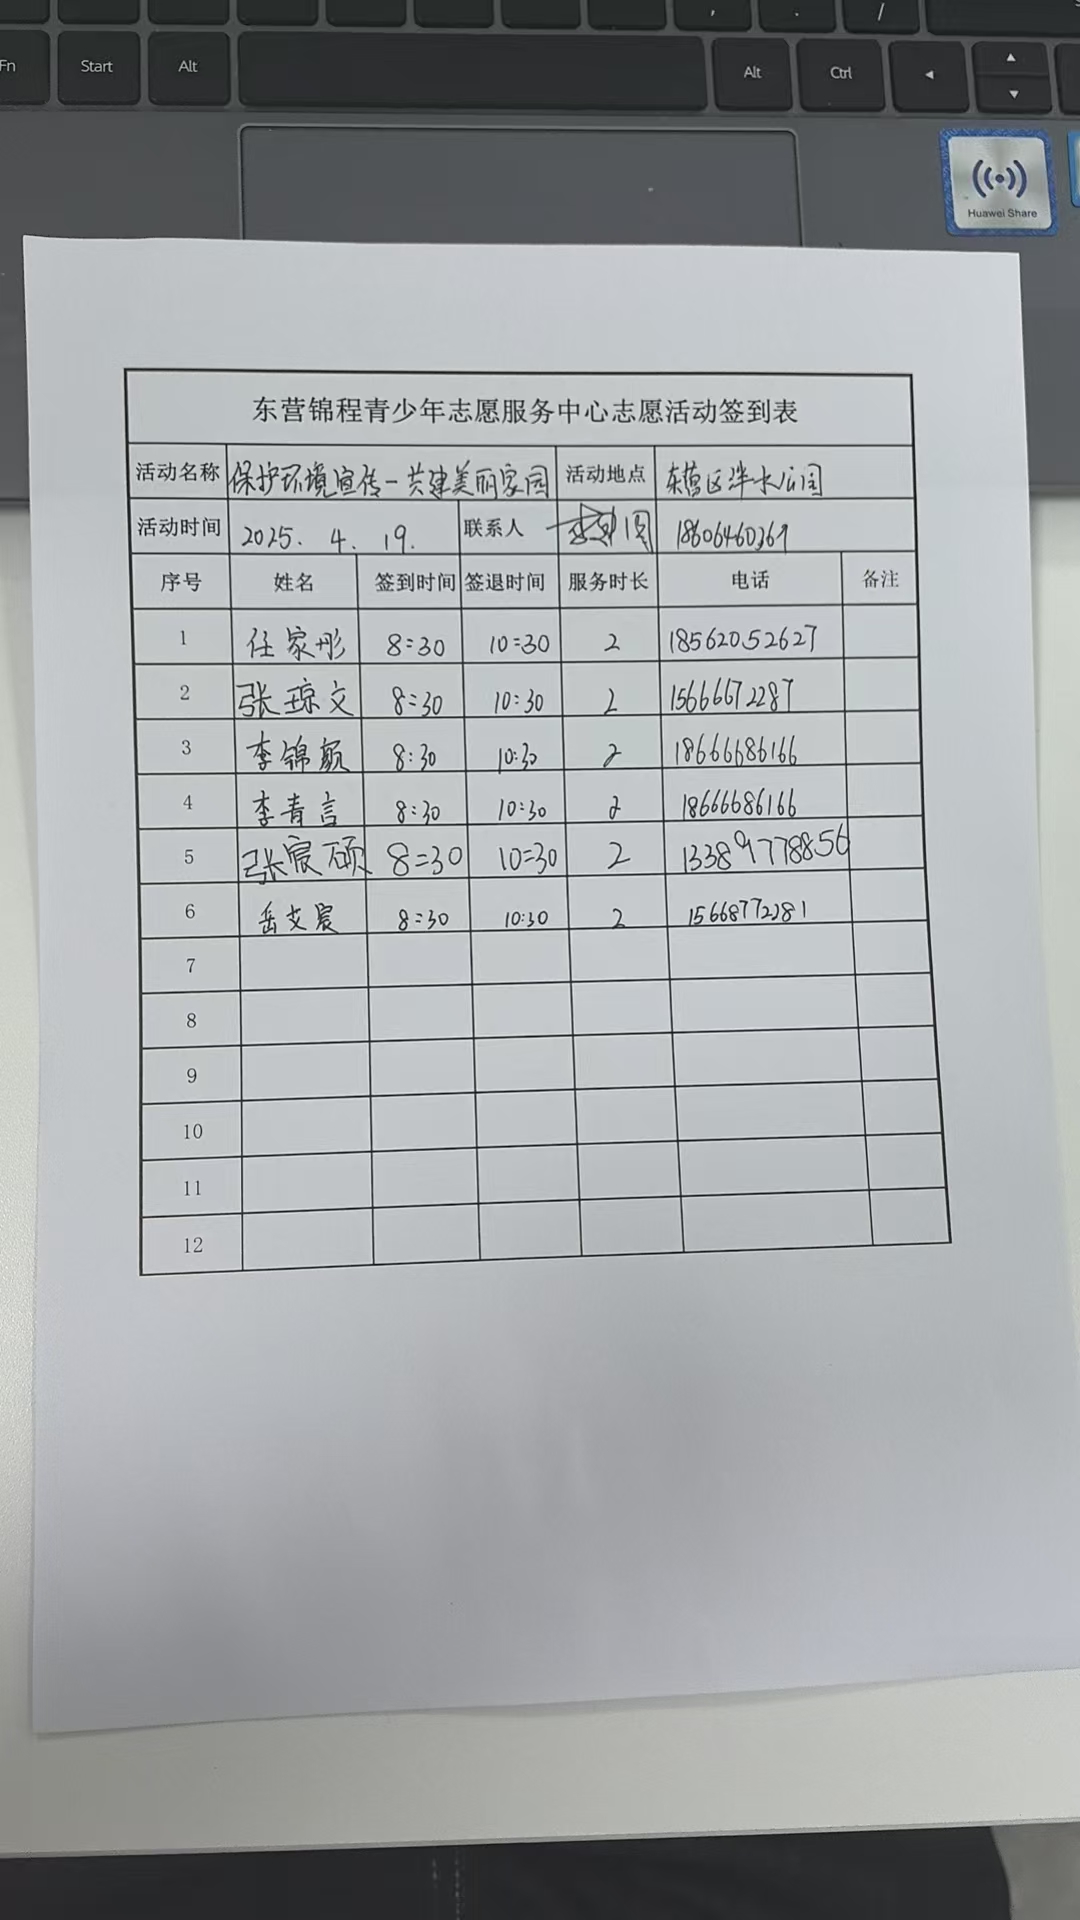 Fn Start Alt Alt Ctrl
Huawei Share
东营锦程青少年志愿服务中心志愿活动签到表
活动名称 保护环境宣传-共建美丽家园 活动地点 东营区泮水公园
活动时间 2025. 4. 19. 联系人 18606460369
序号 姓名 签到时间 签退时间 服务时长 电话 备注
1 任家彤 8:30 10:30 2 18562052627
2 张琼文 8:30 10:30 2 15666672287
3 李锦颜 8:30 10:30 2 18666686166
4 李青言 8:30 10:30 2 18666686166
5 张宸硕 8:30 10:30 2 13389778856
6 岳文宸 8:30 10:30 2 15668772281
7
8
9
10
11
12